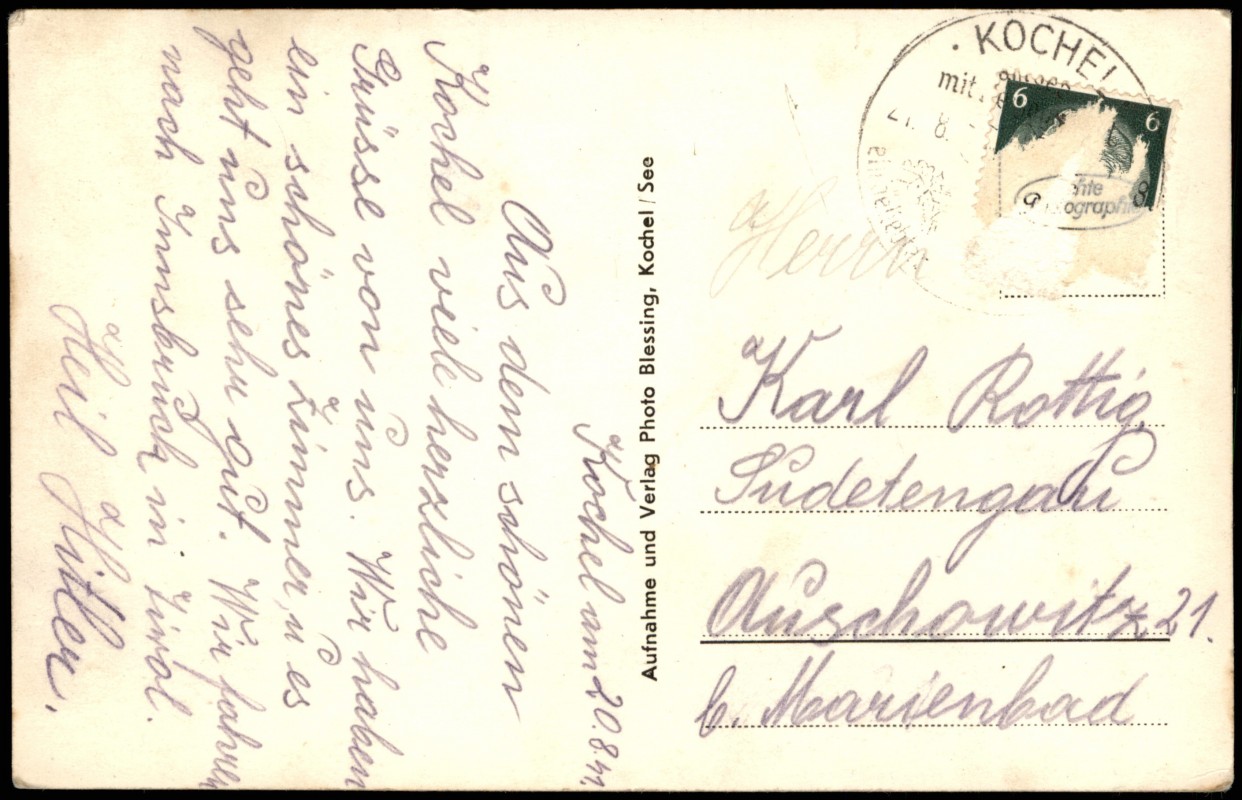 Kochel am 20.8.41.
Aus dem schönen
Kochel viele herzliche
Grüsse von uns. Wir haben
ein schönes Zimmer u es
geht uns sehr gut. Wir fahren
nach Innsbruck in Tirol.
Heil Hitler.
Aufnahme und Verlag Photo Blessing, Kochel/See
· KOCHEL
mit
21. 8.
6 6
8
Herrn
Karl Rottig
Sudetengau
Auschowitz 21.
b. Marienbad